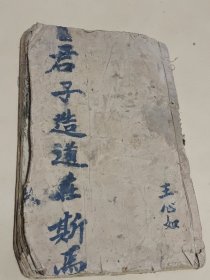 君子造道在斯馬
王心如